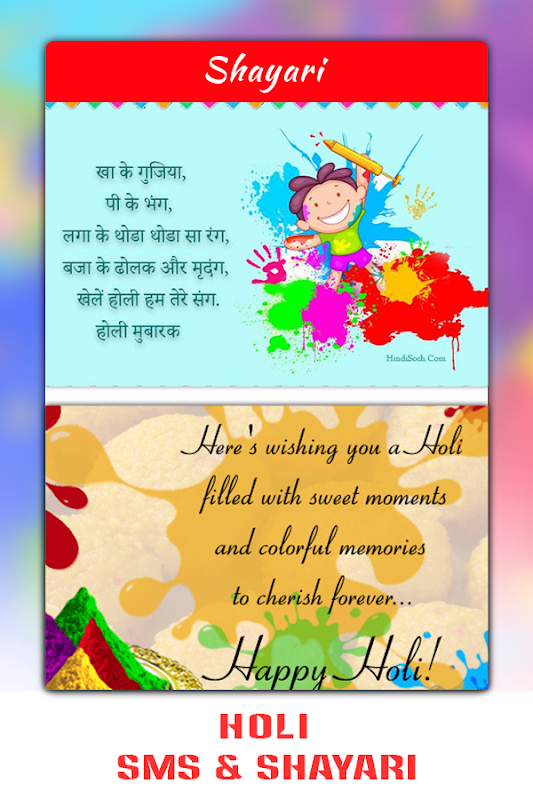 Shayari
खा के गुजिया,
पी के भंग,
लगा के थोडा थोडा सा रंग,
बजा के ढोलक और मृदंग,
खेलें होली हम तेरे संग.
होली मुबारक
HindiSoch.Com
Here's wishing you a Holi
filled with sweet moments
and colorful memories
to cherish forever...
Happy Holi!
HOLI
SMS & SHAYARI